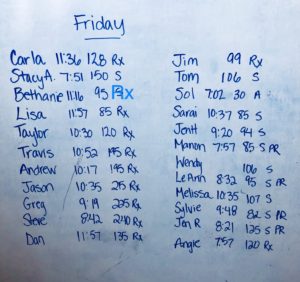 Friday
Carla 11:36 128 Rx
Stacy A. 7:51 150 S
Bethanie 11:16 95 Rx
Lisa 11:57 85 Rx
Taylor 10:30 120 Rx
Travis 10:52 195 Rx
Andrew 10:17 195 Rx
Jason 10:35 215 Rx
Greg 9:19 225 Rx
Steve 8:42 240 Rx
Dan 11:57 135 Rx
Jim 99 Rx
Tom 106 S
Sol 7:02 30 A
Sarai 10:37 85 S
9:20 94 S
Manon 7:57 85 S PR
Wendy 106 S
LeAnn 8:32 95 S PR
Melissa 10:35 107 S
Sylvie 9:48 82 S PR
Jen R 8:21 125 S PR
Angie 7:57 120 Rx